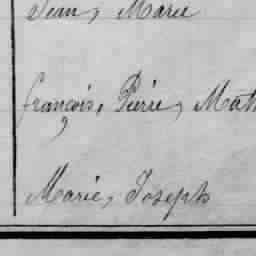 Jean, Marie
françois, Pierre, Math
Marie, Joseph